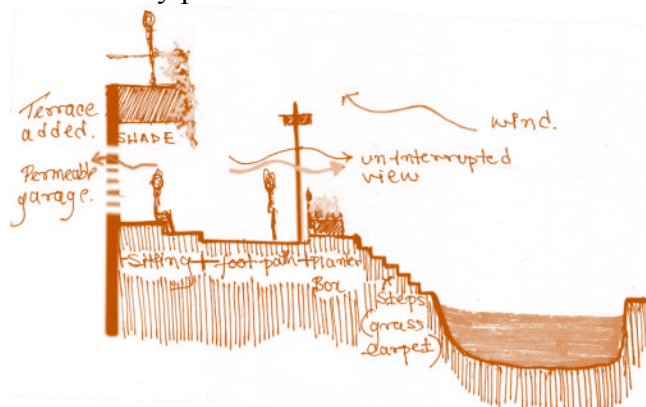 Terrace
added.
SHADE
wind.
un interrupted
view
Permeable
garage.
Sitting
foot path
Planter
Box
Steps
(grass
carpet)